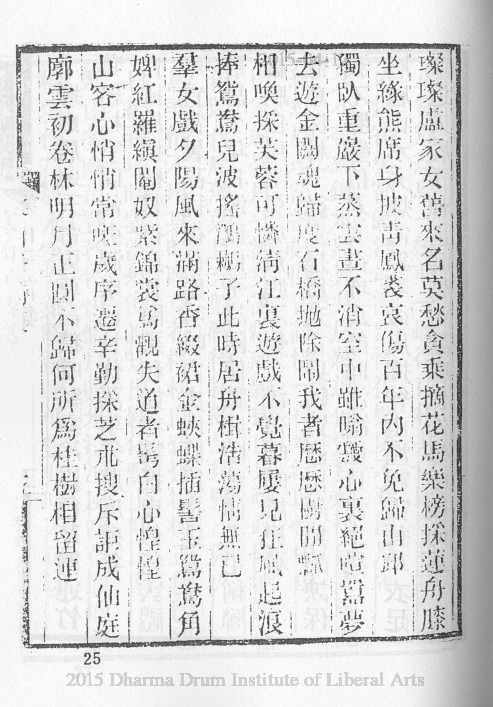 璨璨盧家女舊來名莫愁貪乘摘花馬樂榜採蓮舟膝
坐綠熊席身披青鳳裘哀傷百年內不免歸山邱
獨臥重巖下蒸雲晝不消室中雖嗡靉心裏絕喧囂夢
去遊金闕魂歸度石橋拋除鬧我者歷歷樹間瓢
相喚採芙蓉可憐清江裏遊戲不覺暮屢見狂風起浪
捧鴛鴦兒波搖鸂鶒子此時居舟楫浩蕩情無已
羣女戲夕陽風來滿路香綴裙金蛺蝶插髻玉鴛鴦角
婢紅羅縝閹奴紫錦裳為觀失道者鬢白心惶惶
山客心悄悄常嗟歲序遷辛勤採芝朮搜斥詎成仙庭
廓雲初卷林明月正圓不歸何所為桂樹相留連
25
2015 Dharma Drum Institute of Liberal Arts